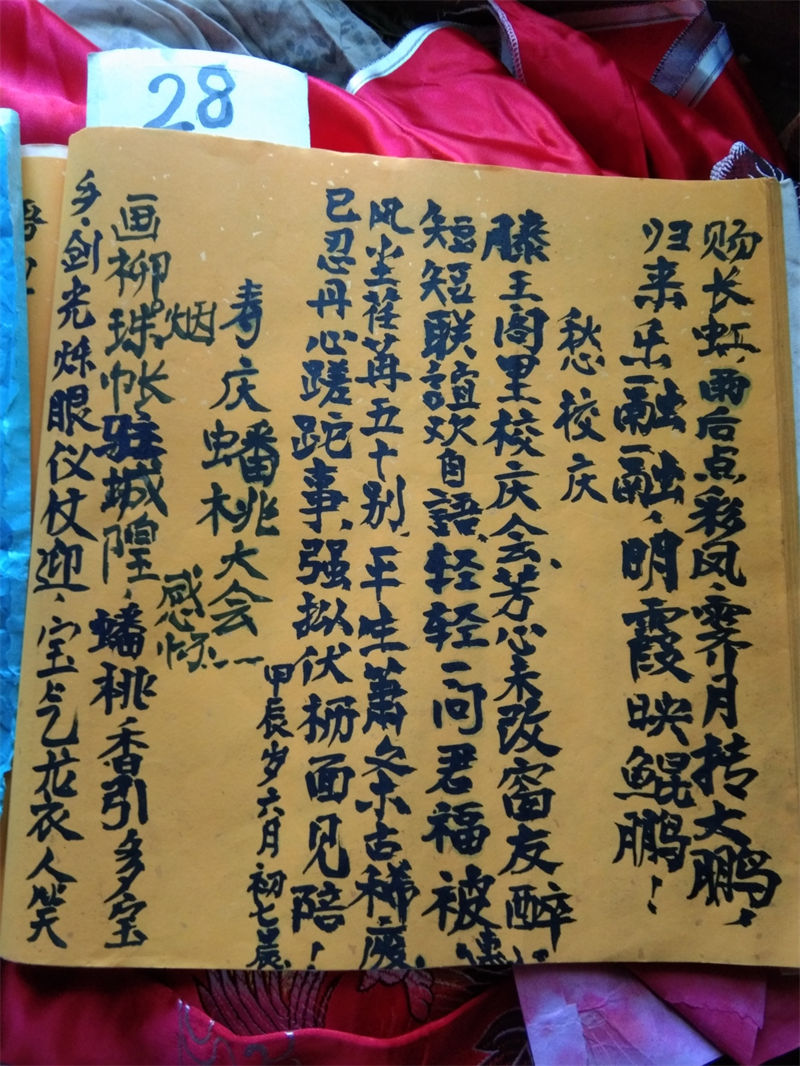 28
赐长虹,雨后点彩凤,霁月抟大鹏,
归来乐融融,明霞映鲲鹏!
愁校庆
滕王阁里校庆会、芳心未改窗友醉
短短联谊欢自語、轻轻一问君福被
风尘荏苒五十别、平生萧条古稀废,
已忍丹心蹉跎事、强拟伏枥面见陪!
甲辰岁六月初七晨
寿庆蟠桃大会一
感怀
烟
画柳珠帐驻城隍、蟠桃香引多宝
乡、剑光烁眼仪仗迎、宝气花衣人笑